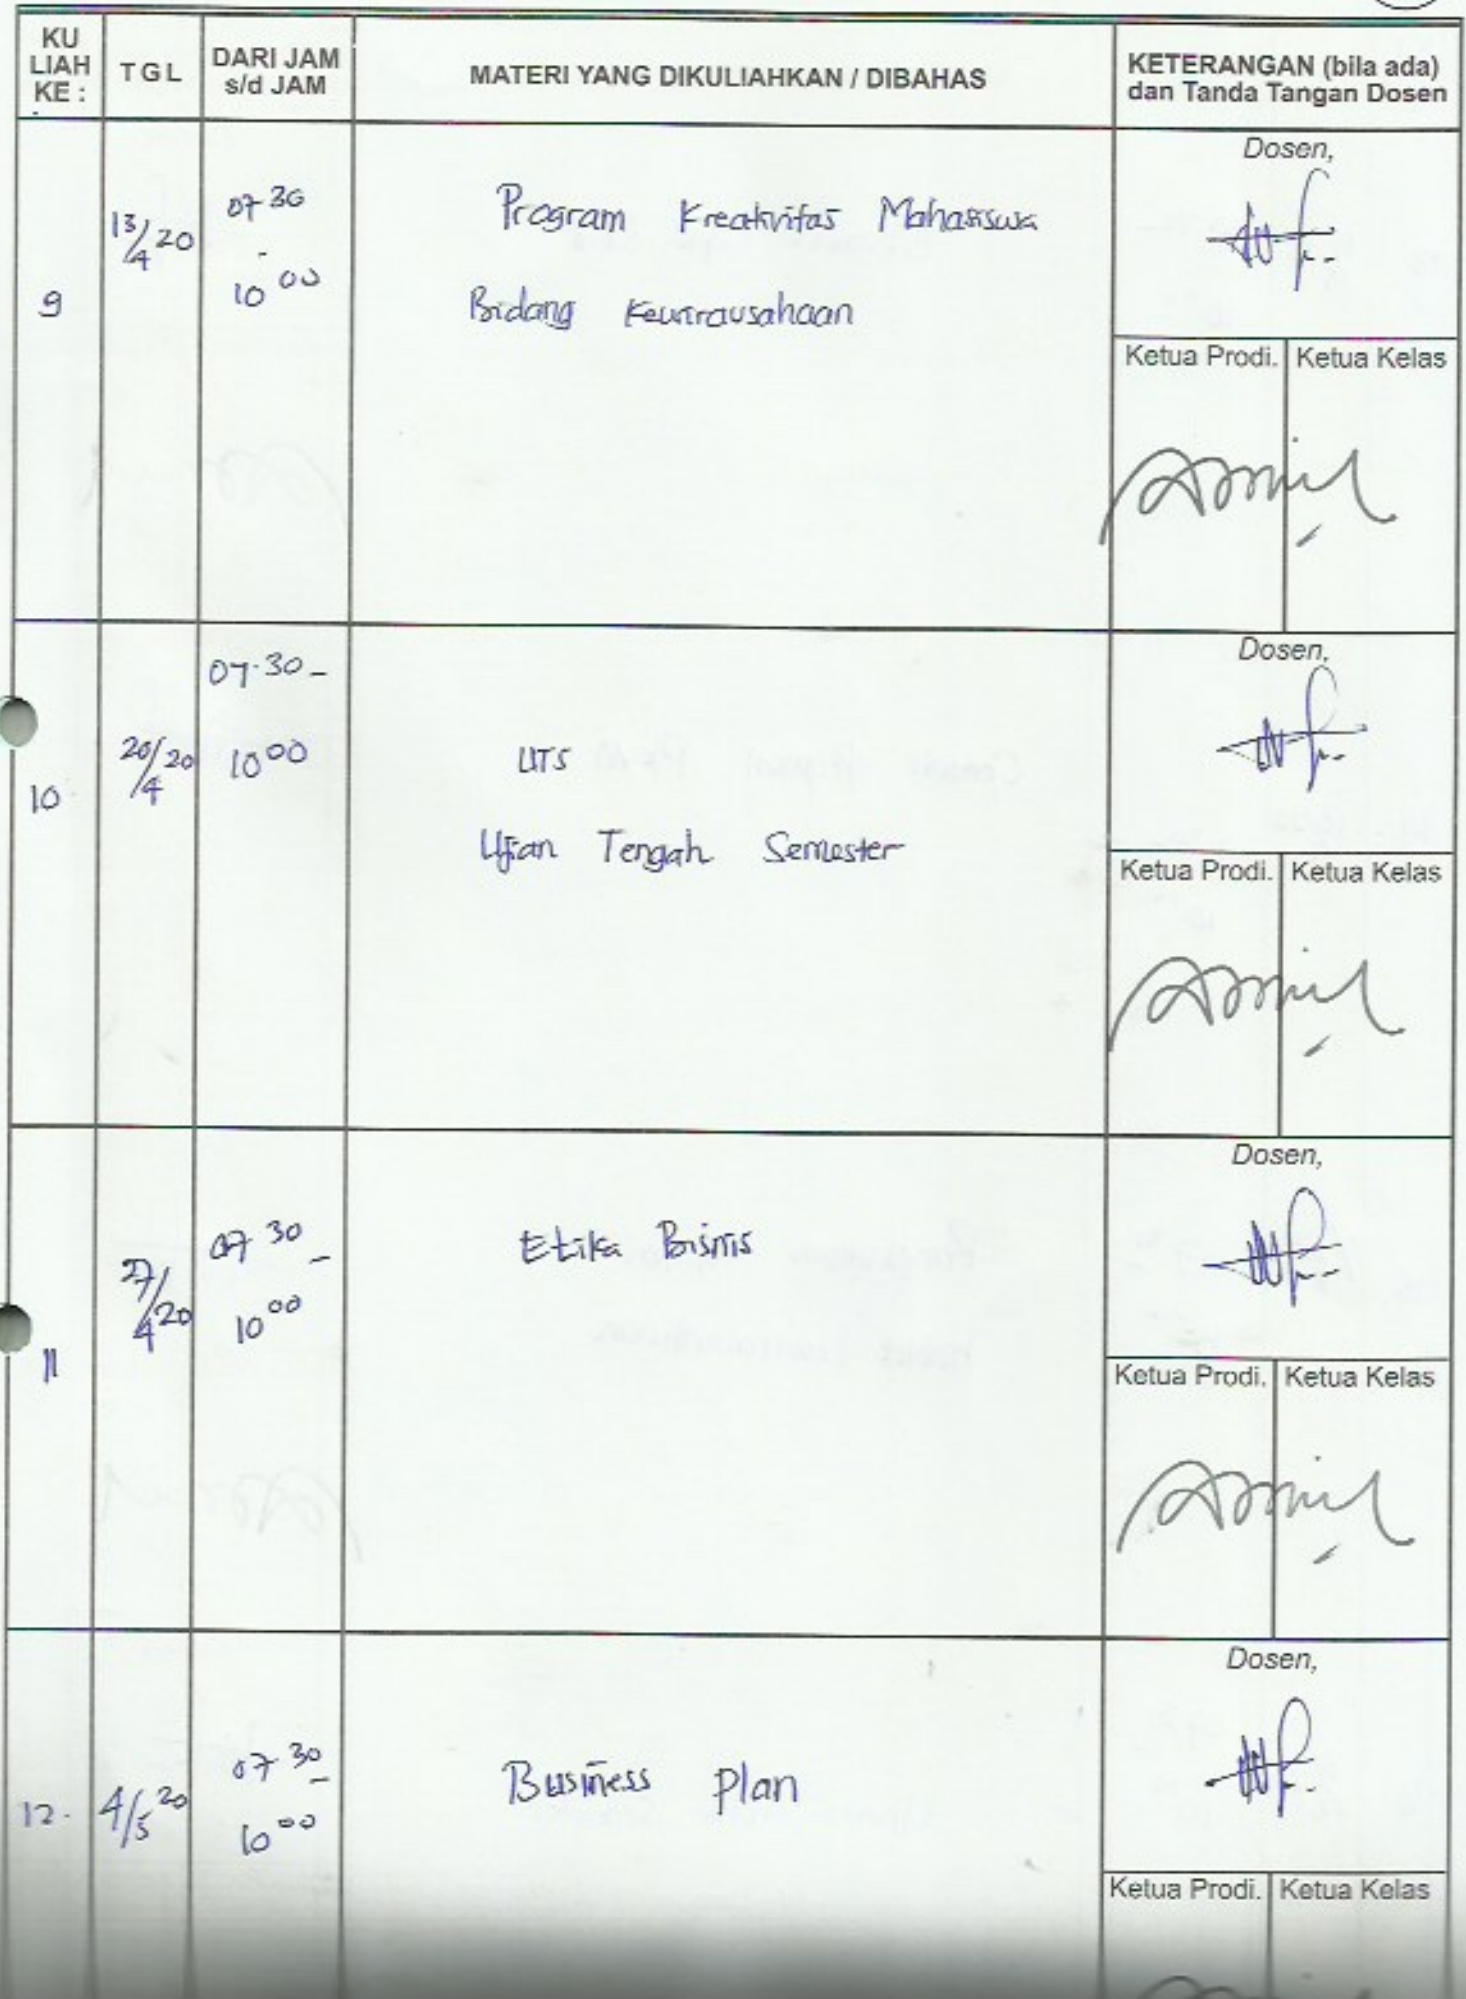 KU
LIAH
KE :
TGL
DARI JAM
s/d JAM
MATERI YANG DIKULIAHKAN / DIBAHAS
KETERANGAN (bila ada)
dan Tanda Tangan Dosen
9
13/4 20
07 30
-
10 00
Program Kreativitas Mahasiswa
Bidang Kewirausahaan
Dosen,
Ketua Prodi. Ketua Kelas
10
20/4 20
07.30 -
10 00
UTS
Ujian Tengah Semester
Dosen,
Ketua Prodi. Ketua Kelas
11
27/4 20
07 30 -
10 00
Etika Bisnis
Dosen,
Ketua Prodi. Ketua Kelas
12.
4/5 20
07 30 -
10 00
Business Plan
Dosen,
Ketua Prodi. Ketua Kelas